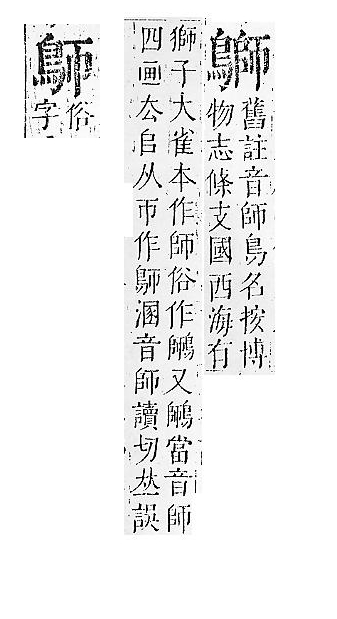 鶳
舊註音師鳥名按博
物志條支國西海有
獅子大雀本作師俗作鶳又鶳當音師
四画厺𠂤从帀作溷音師讀切𠀤誤
俗
字